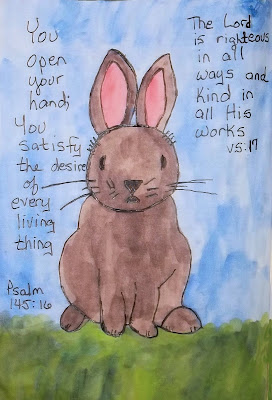 You
open
your
hand;
You
satisfy
the desire
of
every
living
thing
Psalm
145:16
The Lord
is righteous
in all
ways and
Kind in
all His
Works
v5:17